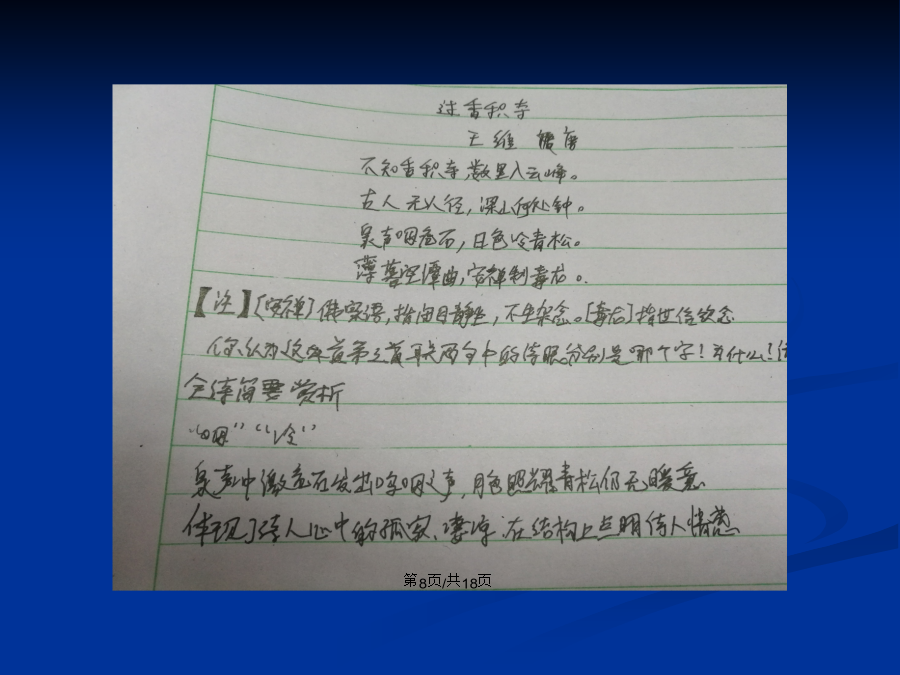 过香积寺
王维
不知香积寺,数里入云峰。
古人无人径,深山何处钟。
泉声咽危石,日色冷青松。
薄暮空潭曲,安禅制毒龙。
【注】〔安禅〕佛家语,指闭目静坐,不生杂念。〔毒龙〕指世俗欲念
你认为这首第三联两句中的诗眼分别是哪个字?为什么?
全诗简要赏析
“咽”“冷”
泉声中激危石发出呜咽之声,月色照耀青松仍无暖意
体现了诗人心中的孤寂、凄凉.在结构上点明诗人情感
第8页/共18页